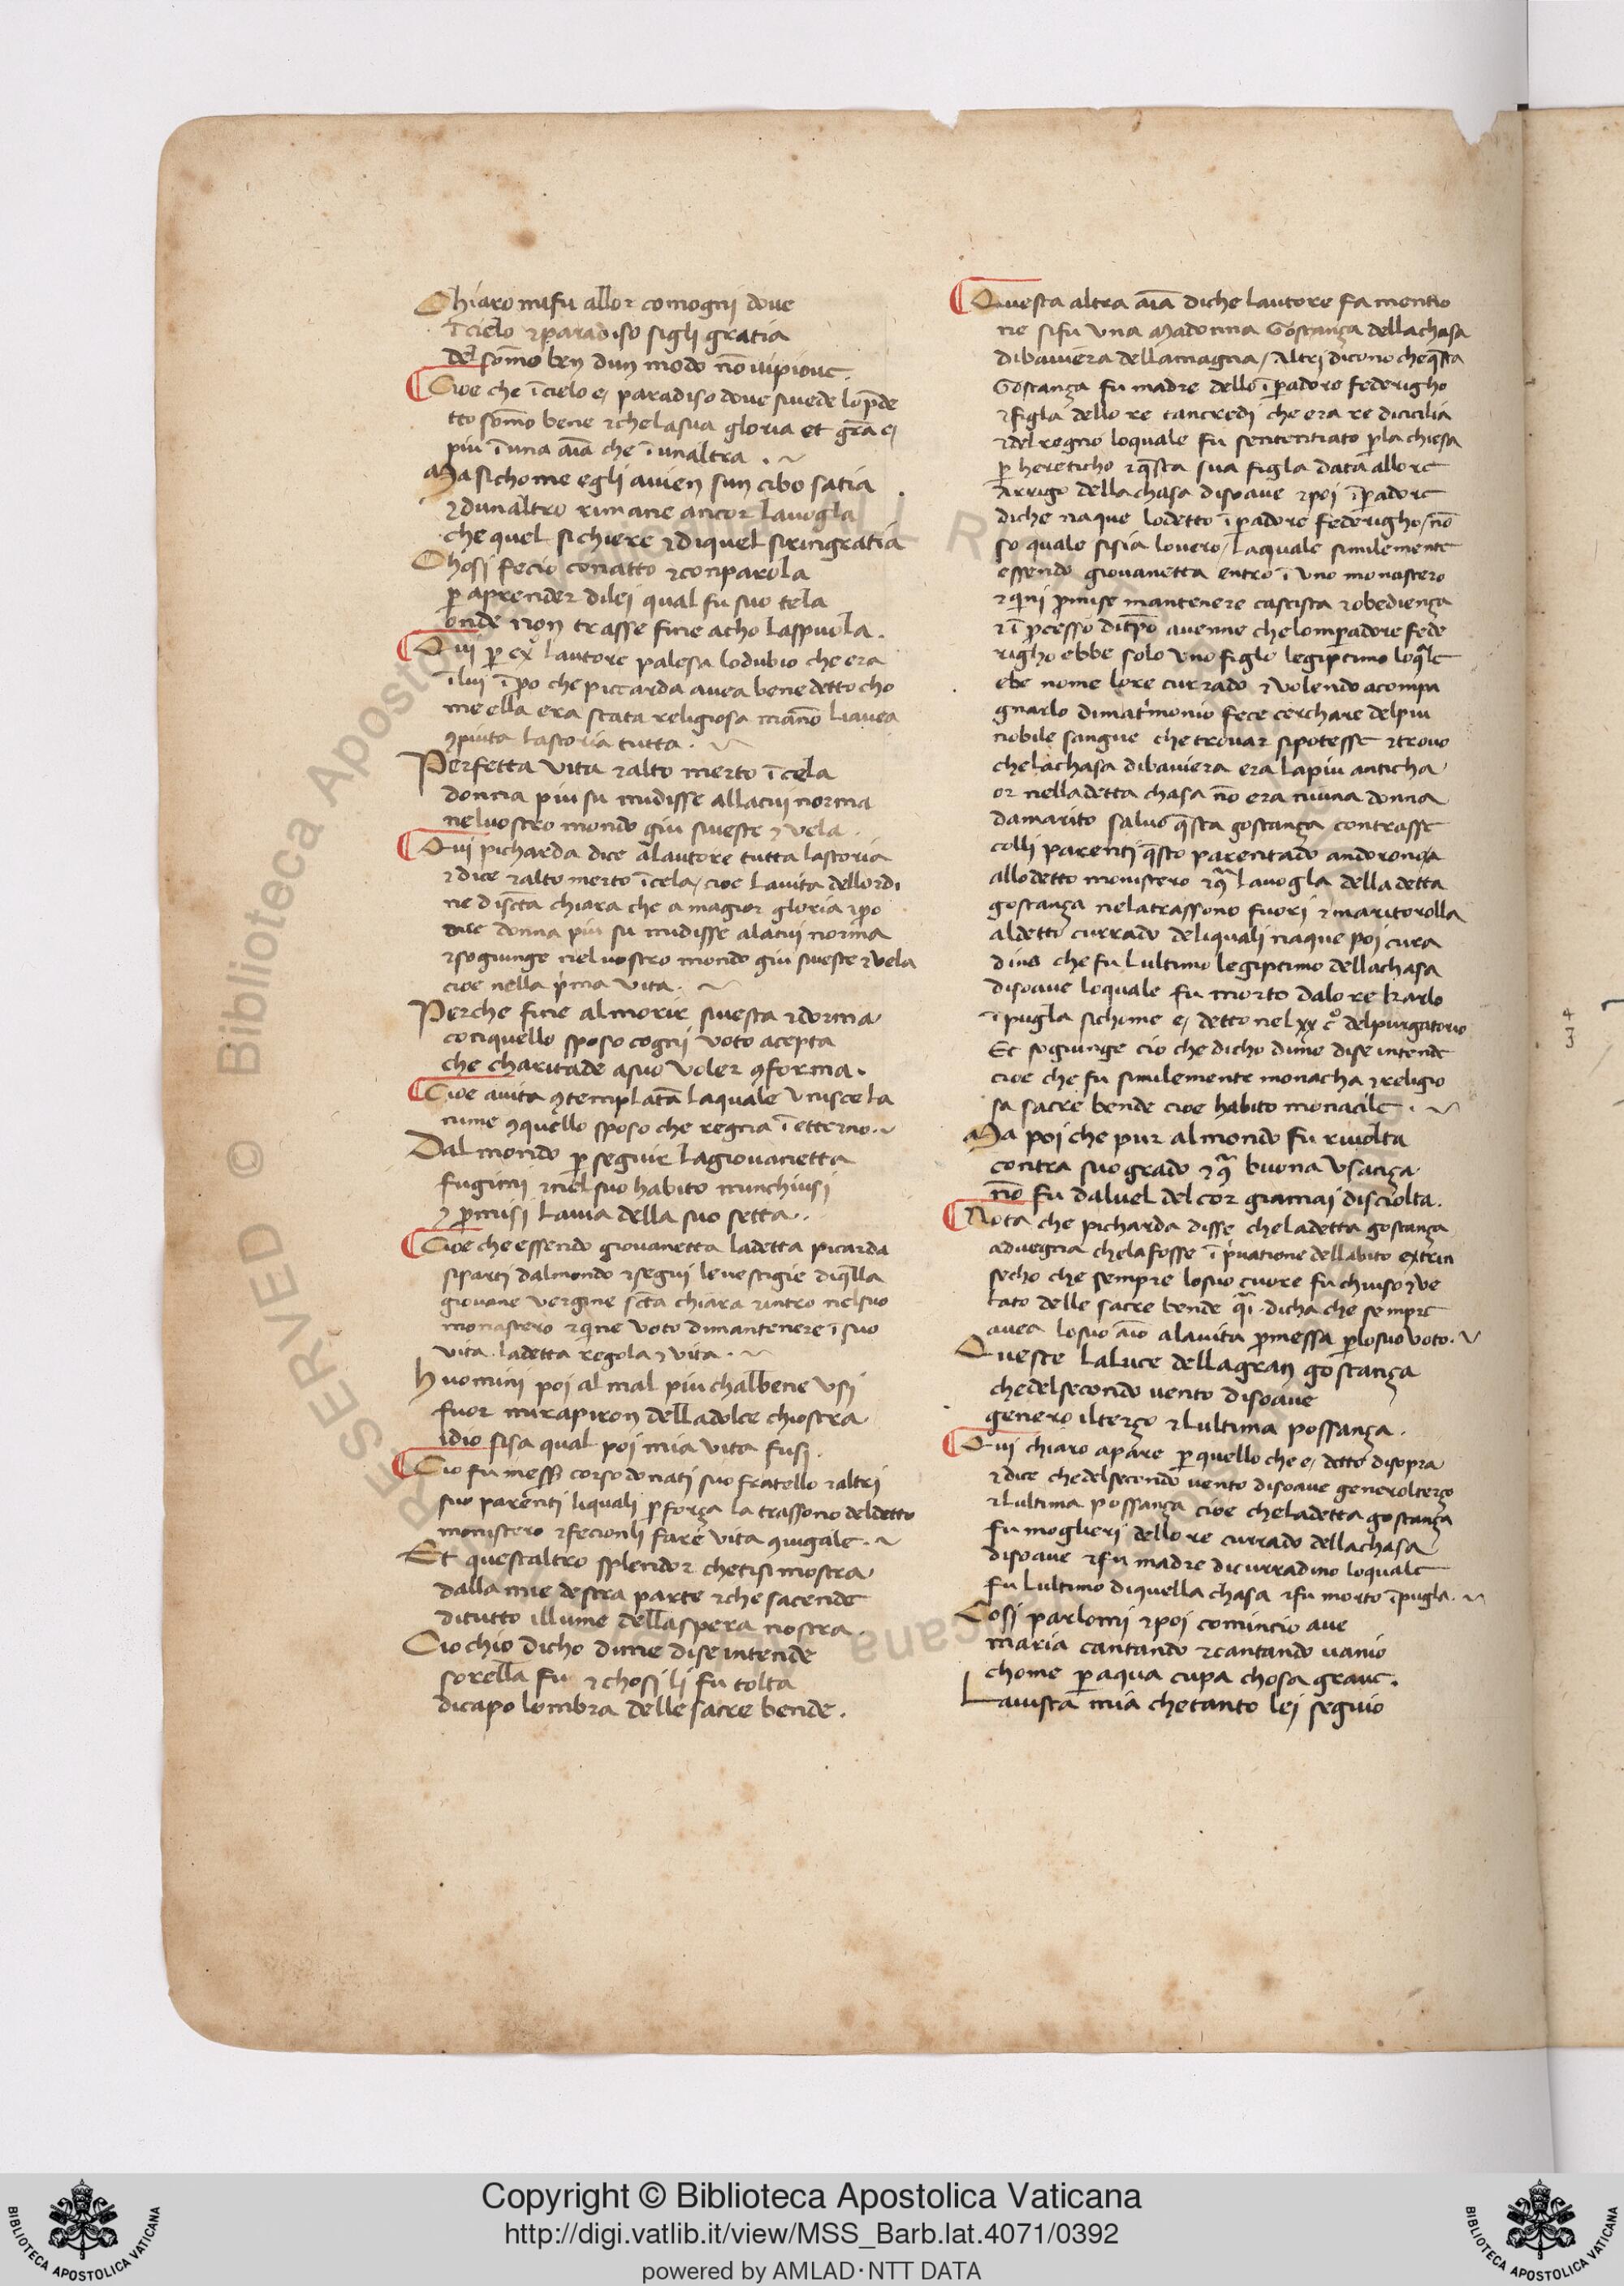 Chiaro mifu allor comogni doue
ī cielo ꝛ paradiso sigli gratia
del som̄o ben dun modo nō uipioue.
Cioe che ī cielo e, paradiso doue siuede lop̄de
tto som̄o bene ꝛ chelasua gloria et gr̄a e,
piu ī una aīa che ī unaltra .
Ma sichome egli auien sun cibo satia
ꝛ dunaltro rimane ancor lauogla
che quel sichiere ꝛ diquel siringratia
Chosi fecio conatto ꝛ conparola
ꝑ aprender dilei qual fu suo tela
onde non trasse fine acho laspuola .
Qui ꝑ lautore palesa lodubio che era
ī lui ī ꝑo che piccarda auea bene detto cho
me ella era stata religiosa manō liauea
ꝯpiuta lastoria tutta .
Perfetta vita ꝛ alto merto ī cela
donna piu su mudisse allacui norma
neluostro mondo giu siueste ꝛ vela .
Qui picharda dice alautore tutta lastoria
ꝛ dice ꝛ alto merto ī cela, cioe lauita dellordi
ne discta chiara che a magior gloria ꝛ ꝑo
dice donna piu su mudisse alacui norma
ꝛ sogiunge nel uostro mondo giu siueste ꝛ vela
cioe nella p̄ma vita .
Perche fine almorir siuesta ꝛ dorma
conquello sposo cogni voto acepta
che charitade asuo voler ꝯforma .
Cioe auita ꝯtemplata laquale vnisce la
nime ꝯquello sposo che regna ī etterno .
Dal mondo ꝑ seguir lagiouanetta
fugimi ꝛ nel suo habito minchiusi
ꝛ ꝓmisi lauia della suo setta .
Cioe che essendo giouanetta ladetta picarda
siparti dalmondo ꝛ segui leuestigie diq̄lla
giouane vergine sc̄ta chiara ꝛ intro nelsuo
monastero ꝛ quine voto dimantenere ī suo
vita ladetta regola ꝛ vita .
Huomini poi al mal piu chalbene vsi
fuor mirapiron delladolce chiostra
idio sisa qual poi mia vita fusi .
Cio fu mess corso donati suo fratello ꝛ altri
suo parenti liquali ꝑ força la trassono deldetto
monistero ꝛ fecionli fare vita ꝯiugale .
Et questaltro splendor chetisi mostra
dalla mie destra parte ꝛ che sacende
ditutto illume dellaspera nostra .
Cio chio dicho dime dise intende
sorella fu ꝛ chosi li fu tolta
dicapo lombra delle sacre bende .
Questa altra aīa diche lautore fa mentio
ne sifu una madonna Gostança dellachasa
dibauiera dellamagna, Altri dicono che q̄sta
Gostança fu madre dello ī ꝑadoro federigho
ꝛ figla dello re tancredi che era re dicicilia
ꝛ del regno loquale fu sententiato ꝑ la chiesa
ꝑ hereticho ꝛ q̄sta sua figla data allore
arrigo dellachasa disoaue ꝛ poi ī ꝑadore
diche naque lodetto ī ꝑadore federigho, nō
so quale sisia louero, laquale similemente
essendo giouanetta entro ī uno monastero
ꝛ quiui ꝓmise mantenere castita ꝛ obediença
ꝛ ī ꝓcesso ditp̄o auenne chelomꝑadore fede
righo ebbe solo vno figlo legiptimo loq̄le
ebe nome lore currado ꝛ volendo acompa
gnarlo dimatrimonio fece cerchare delpiu
nobile sangue che trouar sipotesse ꝛ trouo
chelachasa dibauiera era lapiu anticha
or nelladetta chasa nō era niuna donna
damarito saluo q̄sta gostança contrasse
colli parenti q̄sto parentado andorono
allodetto monistero ꝛ lauogla della detta
gostança nelatrassono fuori ꝛ maritorolla
aldetto currado deliquali naque poi cura
dino che fu lultimo legiptimo dellachasa
disoaue loquale fu morto dalo re karlo
ī pugla sichome e, detto nel xx cͦ delpurgatorio
Et sogiunge cio che dicho dime dise intende
cioe che fu similemente monacha ꝛ religio
sa sacre bende cioe habito monacile .
Ma poi che pur almondo fu riuolta
contra suo grado ꝛ buona vsança
nō fu daluel del cor giamai disciolta .
Nota che picharda disse cheladetta gostança
aduegna chelafosse ī p̄uatione dellabito extrin
secho che sempre losuo cuore fu chiuso ꝛ ve
lato delle sacre bende q̄i dicha che sempre
auea losuo aīo alauita ꝓmessa ꝑ losuo voto .
Queste laluce dellagran gostança
chedelsecondo vento disoaue
genero ilterço ꝛ lultima possança .
Qui chiaro apare ꝑ quello che e, detto disopra
ꝛ dice chedelsecondo vento disoaue generolterço
ꝛ lultima possança cioe cheladetta gostança
fu moglieri dello re currado dellachasa
disoaue ꝛ fu madre dicurradino loquale
fu lultimo diquella chasa ꝛ fu morto ī pugla .
Cosi parlomi ꝛ poi comincio aue
maria cantando ꝛ cantando uanio
chome ꝑ aqua cupa chosa graue .
Lauista mia chetanto lei seguio
4
3
Copyright © Biblioteca Apostolica Vaticana
http://digi.vatlib.it/view/MSS_Barb.lat.4071/0392
powered by AMLAD·NTT DATA
BIBLIOTECA APOSTOLICA VATICANA
BIBLIOTECA APOSTOLICA VATICANA